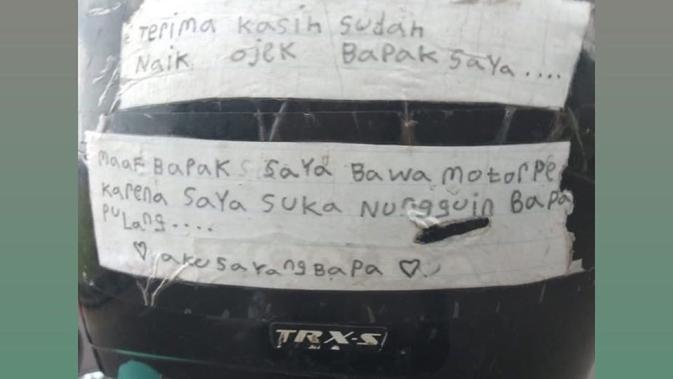 Terima kasih sudah
Naik ojek Bapak saya....
maaf Bapak saya Bawa motor pe
karena saya suka Nungguin Bapa
Pulang....
♡ aku sayang Bapa ♡
TRX-S